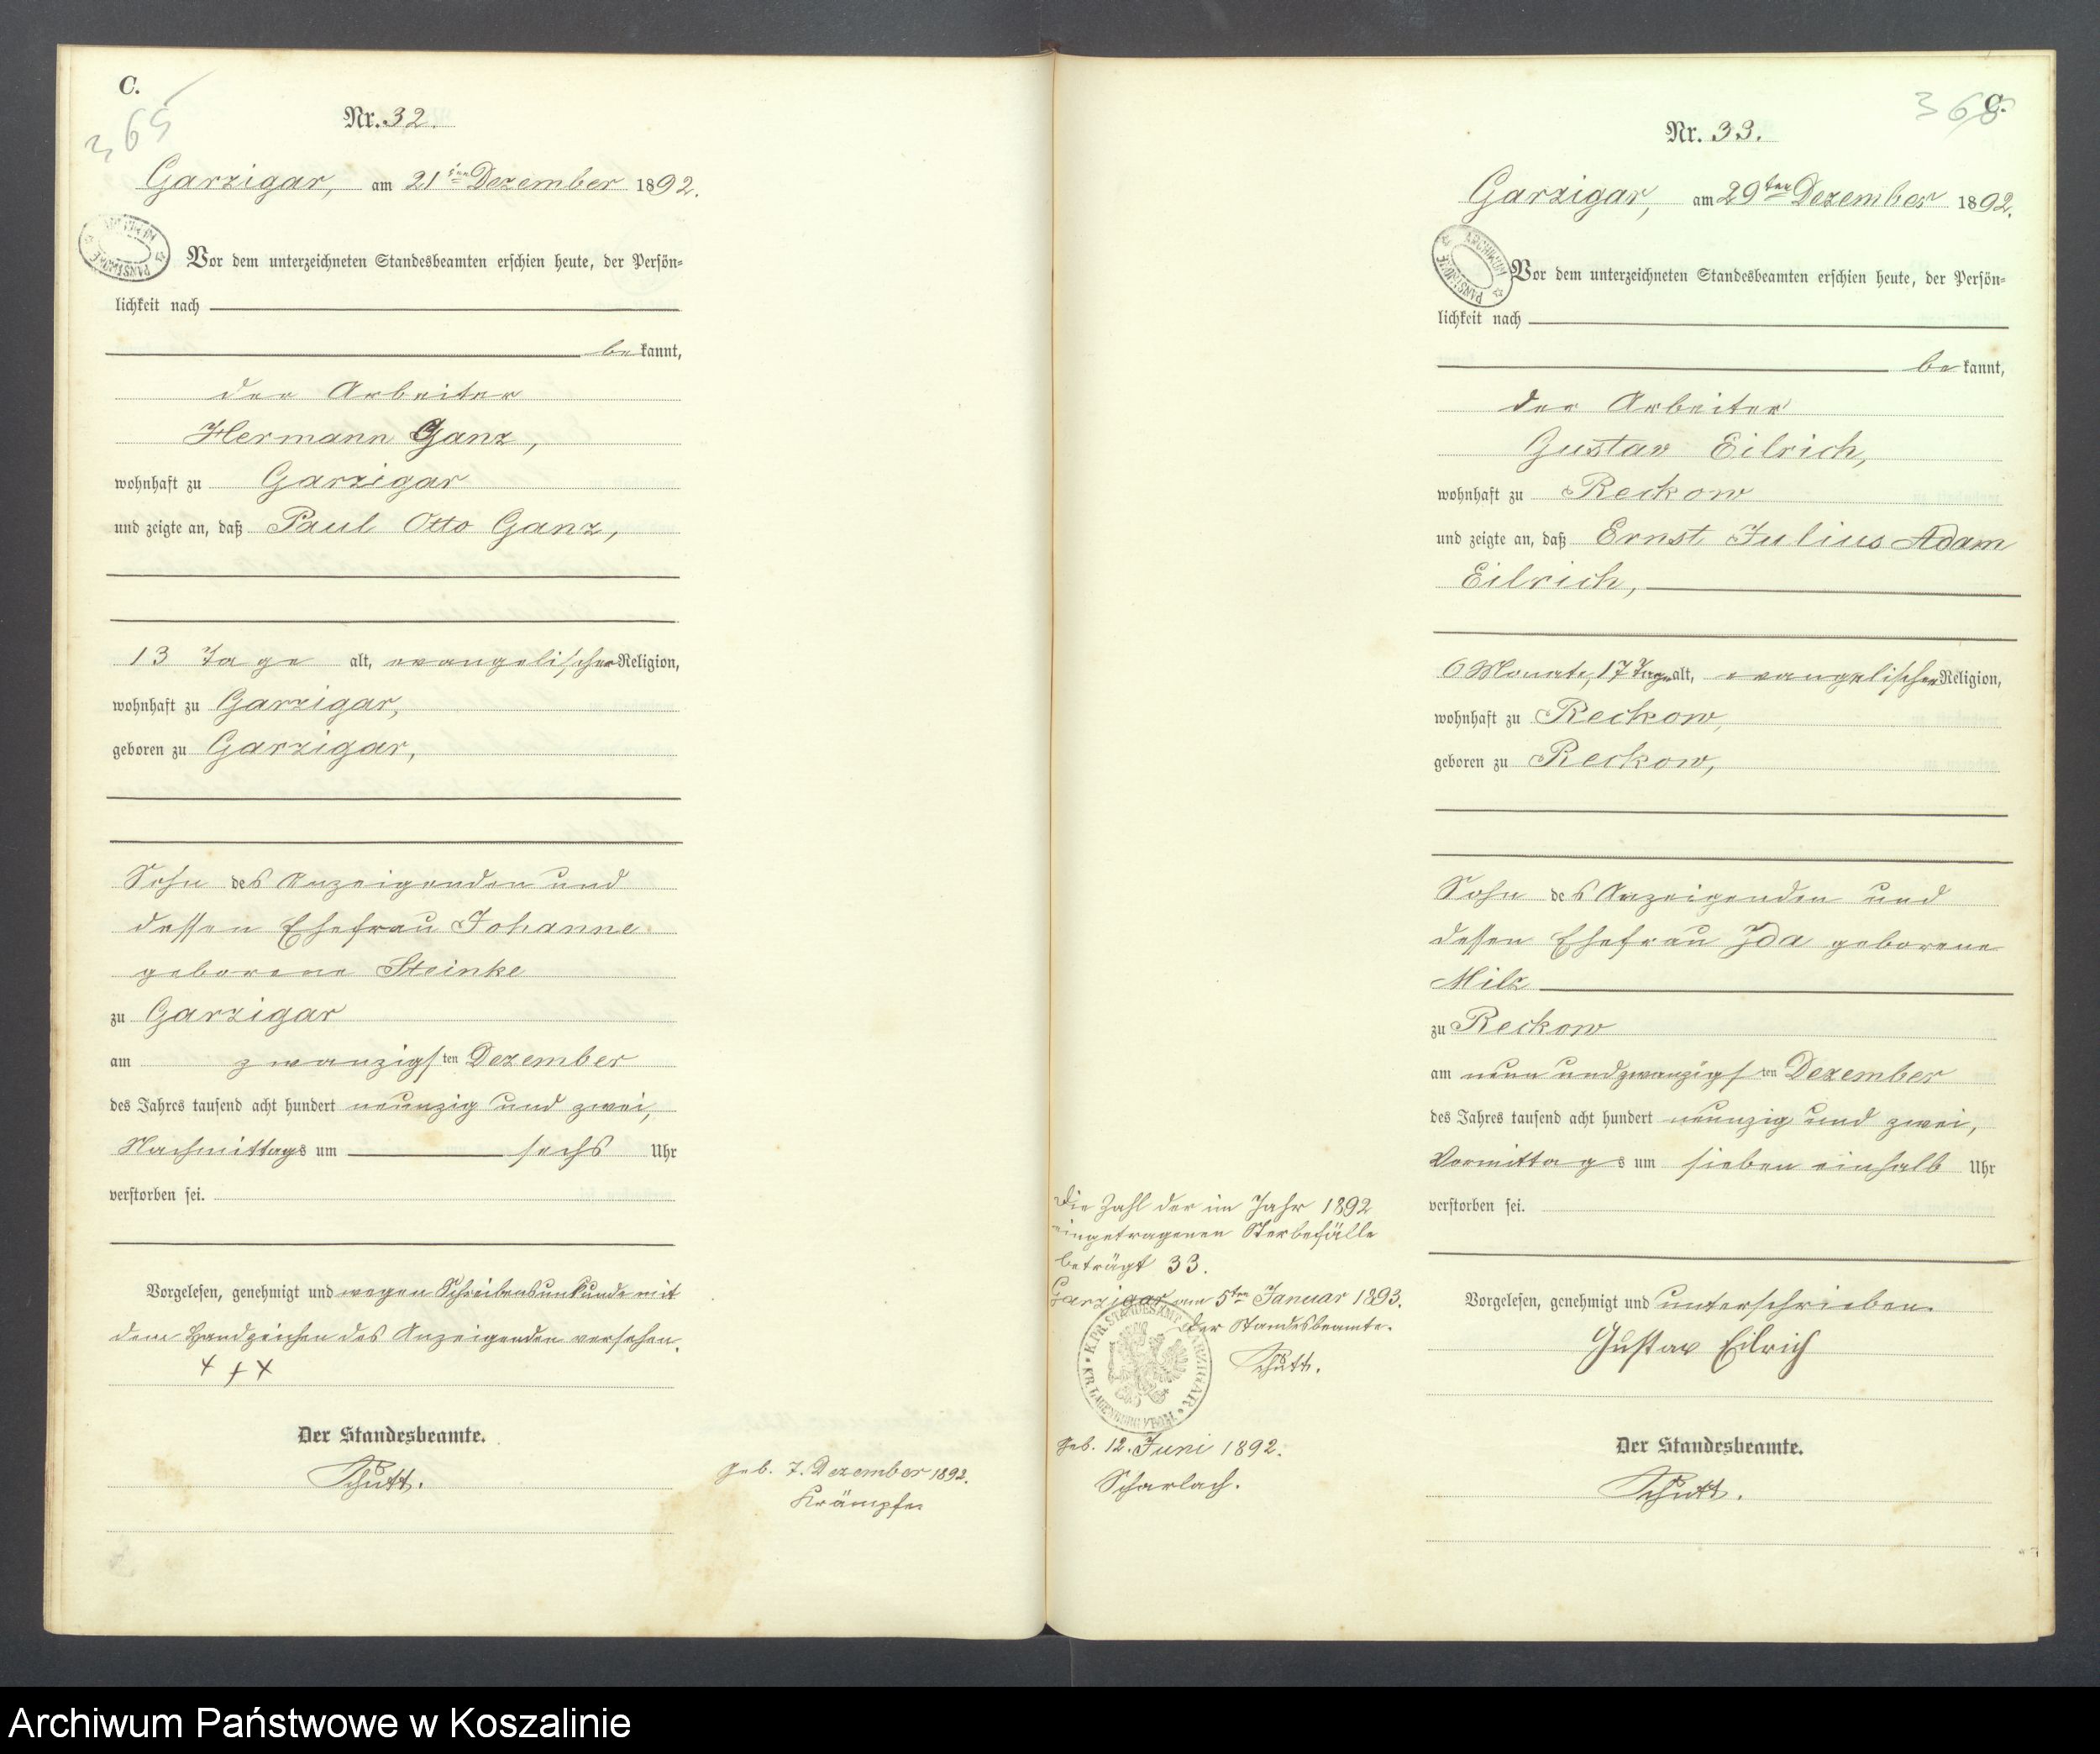 C.
365
Nr. 32.
Garzigar, am 21ten Dezember 1892.
ARCHIWUM PAŃSTWOWE
Vor dem unterzeichneten Standesbeamten erschien heute, der Persön=
lichkeit nach
bekannt,
der Arbeiter
Hermann Ganz,
wohnhaft zu Garzigar
und zeigte an, daß Paul Otto Ganz,
13 Tage alt, evangelischer Religion,
wohnhaft zu Garzigar,
geboren zu Garzigar,
Sohn des Anzeigenden und
dessen Ehefrau Johanne
geborene Steinke
zu Garzigar
am zwanzigsten Dezember
des Jahres tausend acht hundert neunzig und zwei,
Nachmittags um sechs Uhr
verstorben sei.
Vorgelesen, genehmigt und wegen Schreibensunkunde mit
dem Handzeichen des Anzeigenden versehen.
+ + +
Der Standesbeamte.
Schütt.
geb. 7. Dezember 1892.
Krämpfe
C.
Nr. 33.
Garzigar, am 29ten Dezember 1892.
ARCHIWUM PAŃSTWOWE
Vor dem unterzeichneten Standesbeamten erschien heute, der Persön=
lichkeit nach
bekannt,
der Arbeiter
Gustav Eilrich,
wohnhaft zu Reckow
und zeigte an, daß Ernst Julius Adam
Eilrich,
6 Monate, 17 Tage alt, evangelischer Religion,
wohnhaft zu Reckow,
geboren zu Reckow,
Sohn des Anzeigenden und
dessen Ehefrau Ida geborene
Milz
zu Reckow
am neun und zwanzigsten Dezember
des Jahres tausend acht hundert neunzig und zwei,
Vormittags um sieben einhalb Uhr
verstorben sei.
Vorgelesen, genehmigt und unterschrieben.
Gustav Eilrich
Der Standesbeamte.
Schütt.
Die Zahl der im Jahr 1892
eingetragenen Sterbefälle
beträgt 33.
Garzigar am 5ten Januar 1893.
Der Standesbeamte.
Schütt.
KPR. STANDESAMT GARZIGAR KR. LAUENBURG I/POM
geb. 12. Juni 1892.
Scharlach.
Archiwum Państwowe w Koszalinie